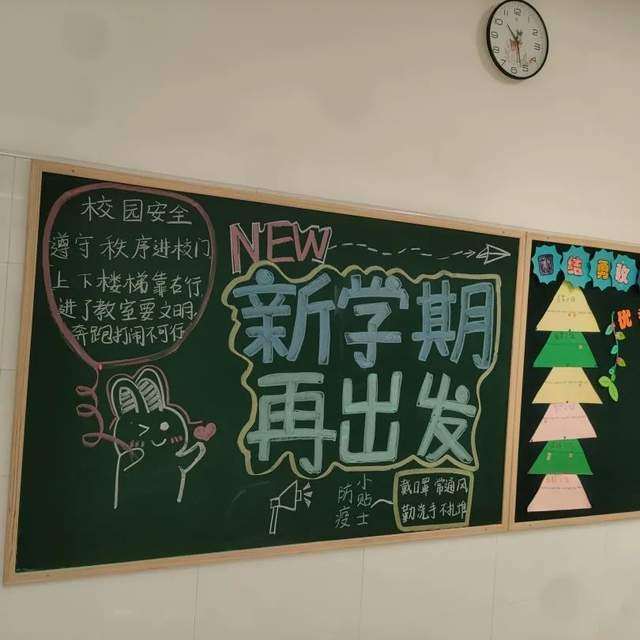 校园安全
遵守秩序进校门
上下楼梯靠右行
进了教室要文明
奔跑打闹不可行
NEW
新学期
再出发
防疫
小贴士
戴口罩 常通风
勤洗手 不扎堆
团结勇敢
优